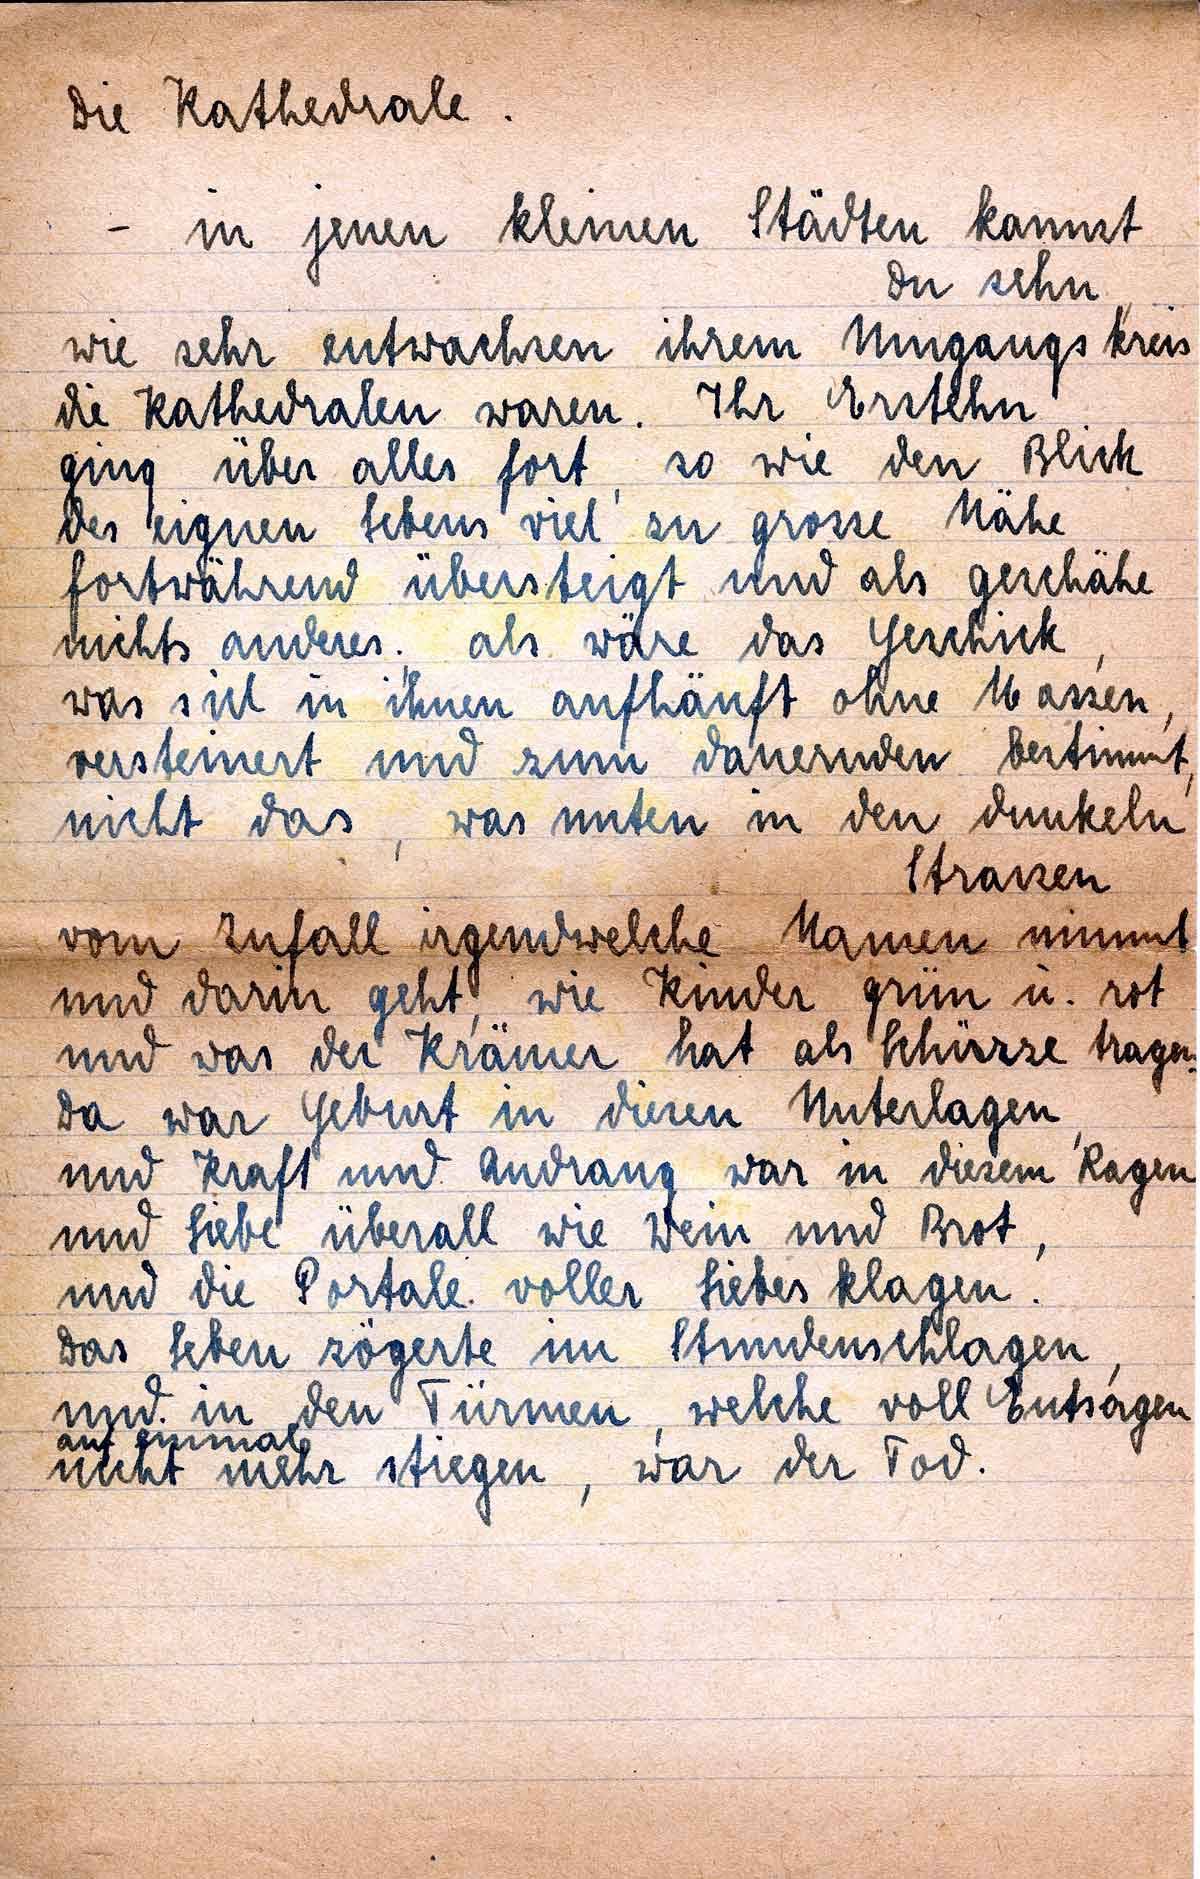 Die Kathedrale.
- in jenen kleinen Städten kannst
Du sehn,
wie sehr entwachsen ihrem Umgangskreis
die Kathedralen waren. Ihr Erstehn
ging über alles fort, so wie den Blick
des eignen Lebens viel zu grosse Nähe
fortwährend übersteigt und als geschähe
nichts anderes; als wäre das Geschick,
was sich in ihnen aufhäuft ohne Massen,
versteinert und zum dauernden bestimmt,
nicht das, was unten in den dunkeln
Strassen
vom Zufall irgendwelche Namen nimmt
und darin geht, wie Kinder grün u. rot
und was der Krämer hat als Schürze tragen.
Da war Geburt in diesen Unterlagen,
und Kraft und Andrang war in diesem Ragen
und Liebe überall wie Wein und Brot,
und die Portale voller Liebesklagen.
Das Leben zögerte im Stundenschlagen,
und in den Türmen, welche voll Entsagen
auf einmal
nicht mehr stiegen, war der Tod.